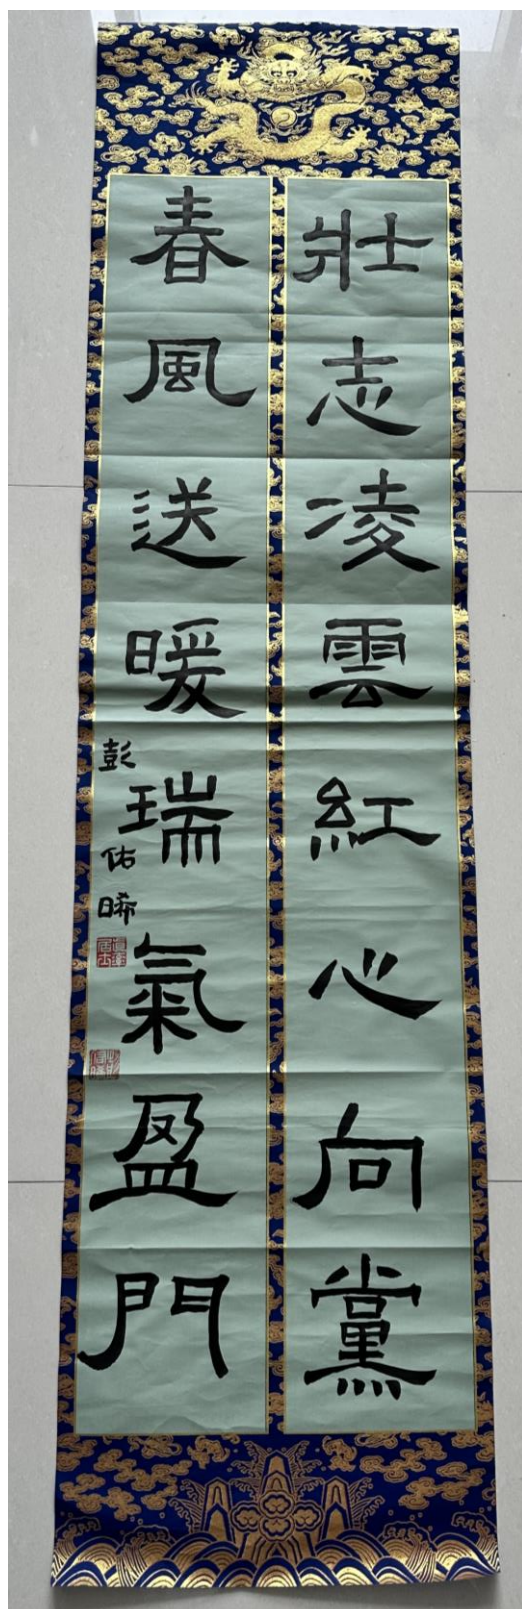 壯志凌雲紅心向黨
春風送暖瑞氣盈門
彭佑晞